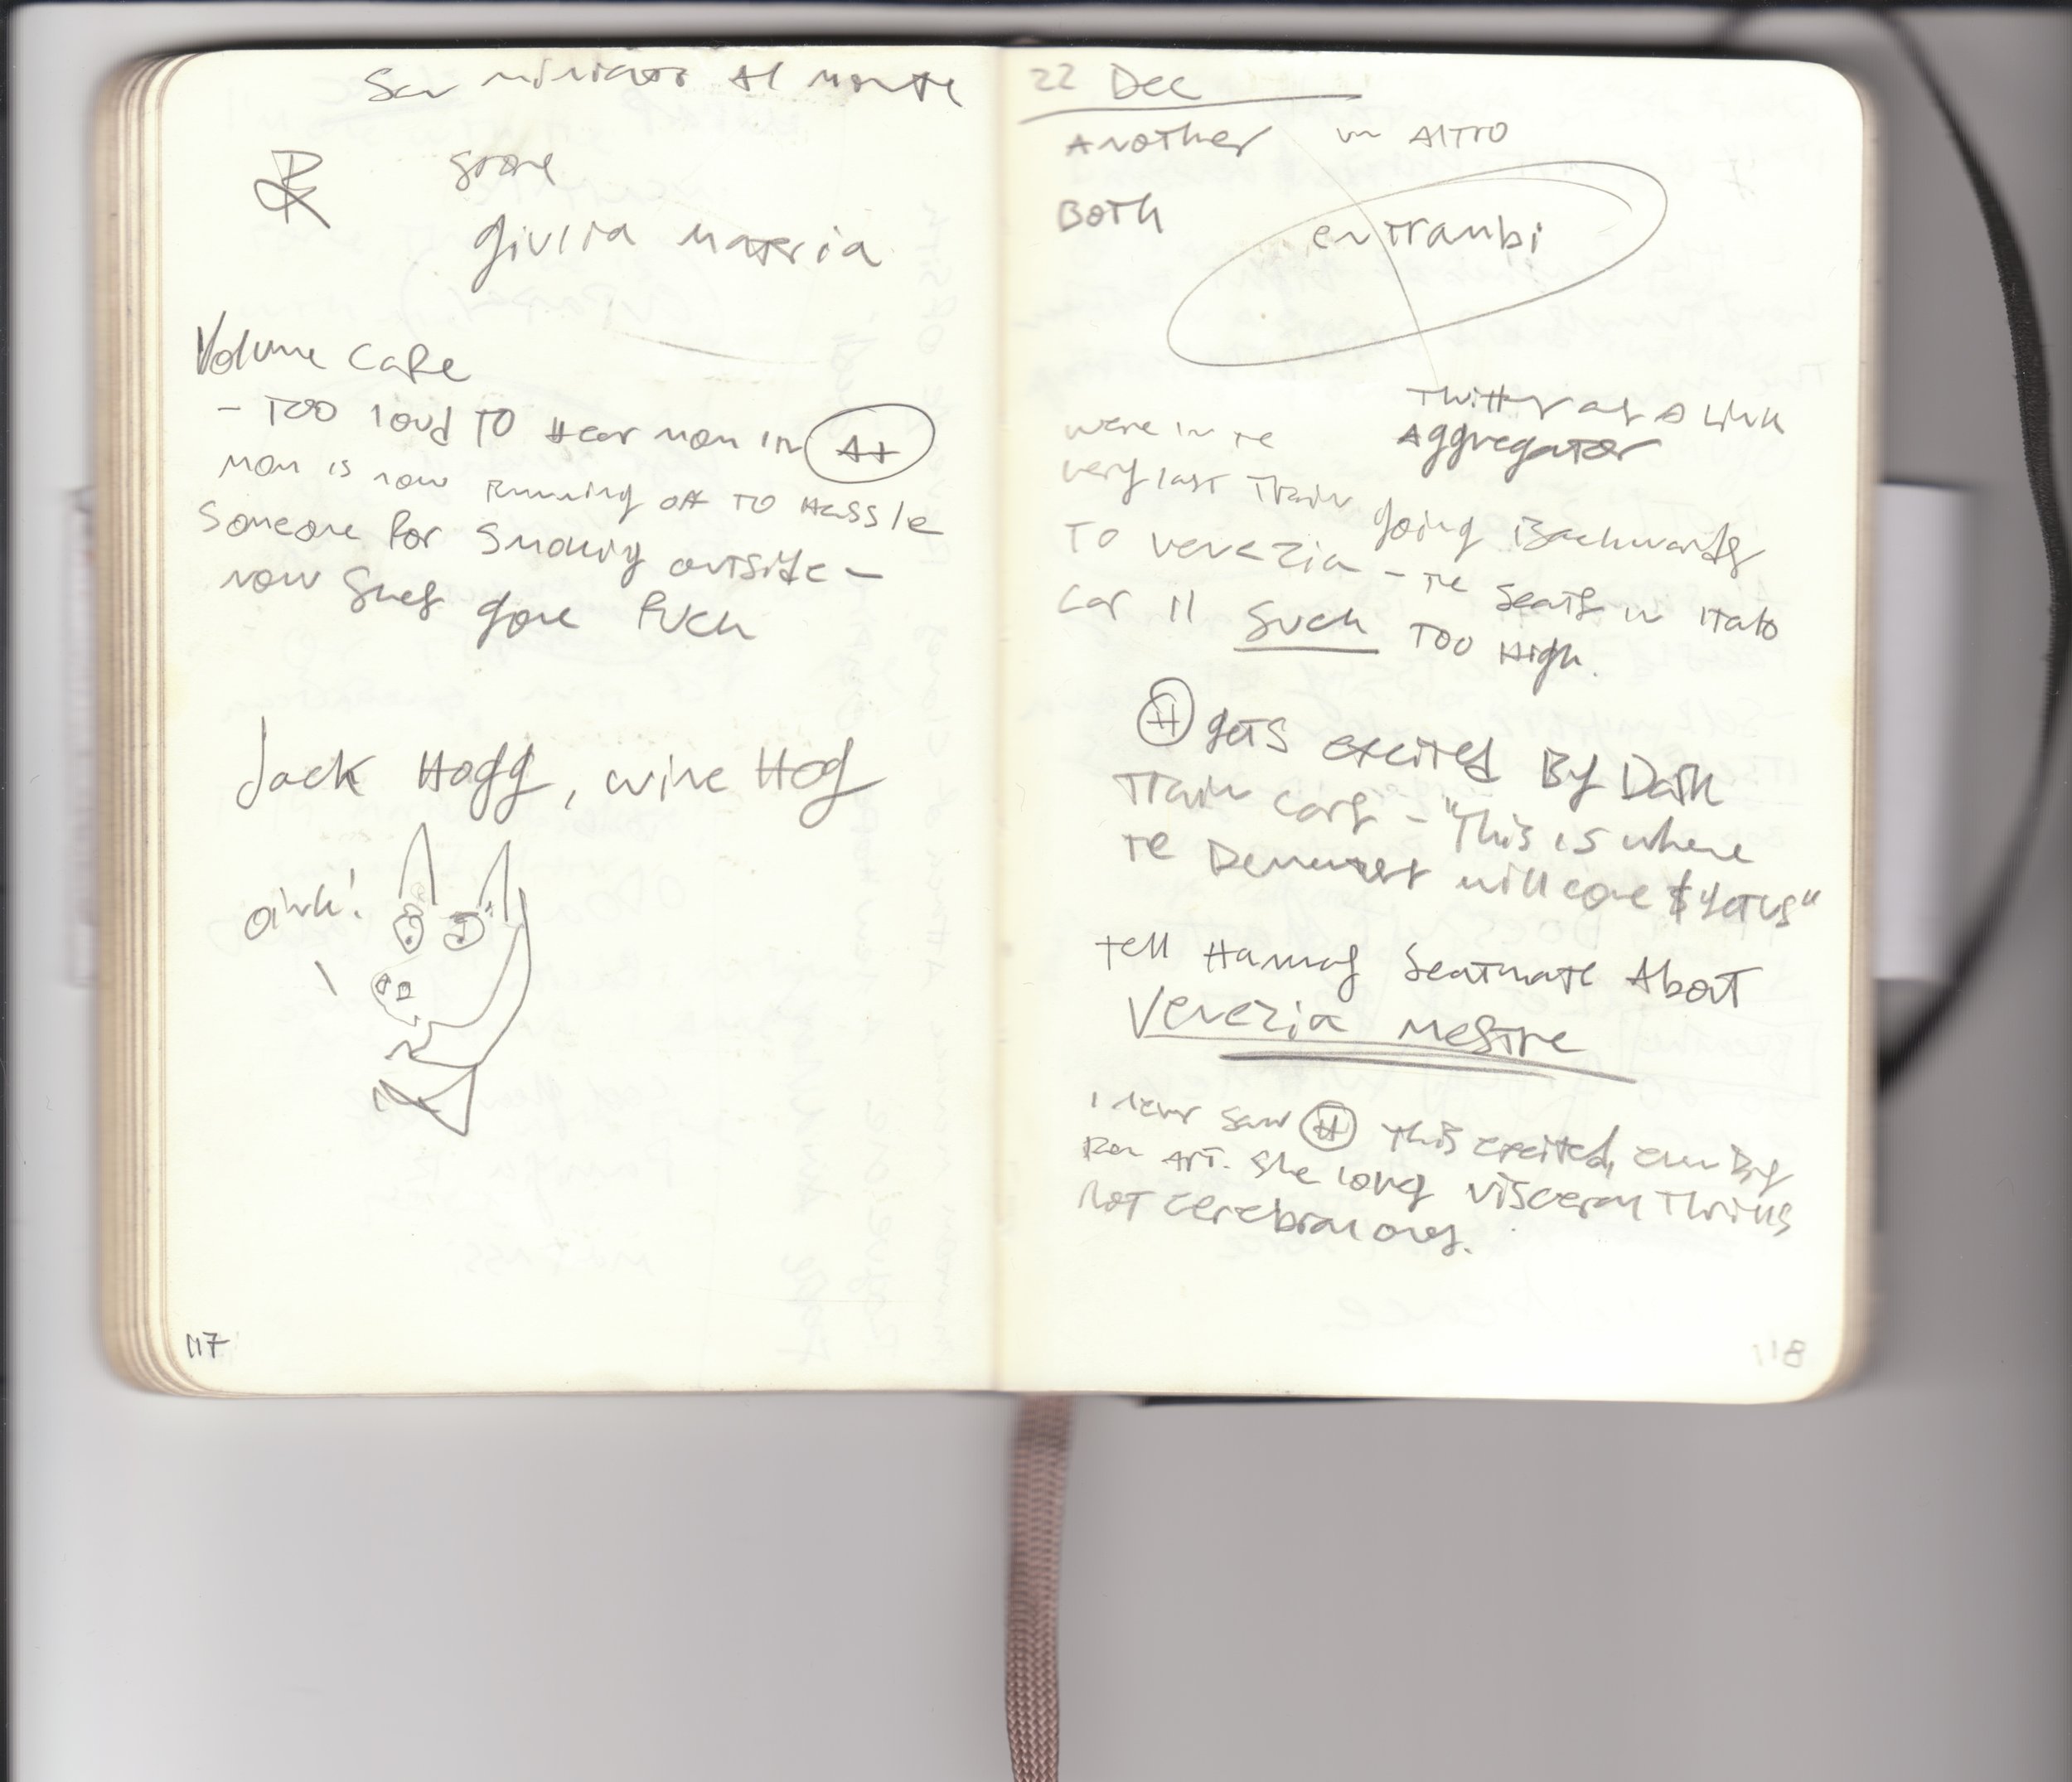 San miniato Al monte
store
giulia materia
Volume cafe
- Too loud TO Hear mom in A+
mom is now running off TO Hassle
Someone for Smoking outside -
now Shes gone Fuck
Jack Hogg, wine Hog
oink!
117
22 Dec
Another un Altro
Both entrambi
Twitter as a Link
Aggregator
were in te
very last Train going Backwards
To venezia - Te Seats in Italo
Car 11 Suck Too High.
H gets excited By Dark
Train cars - "This is where
Te will come & get us"
Tell Seatmate About
Venezia mestre
I never Saw H This excited, even By
Ren Art. She long visceral Thrills
not cerebral ones.
118